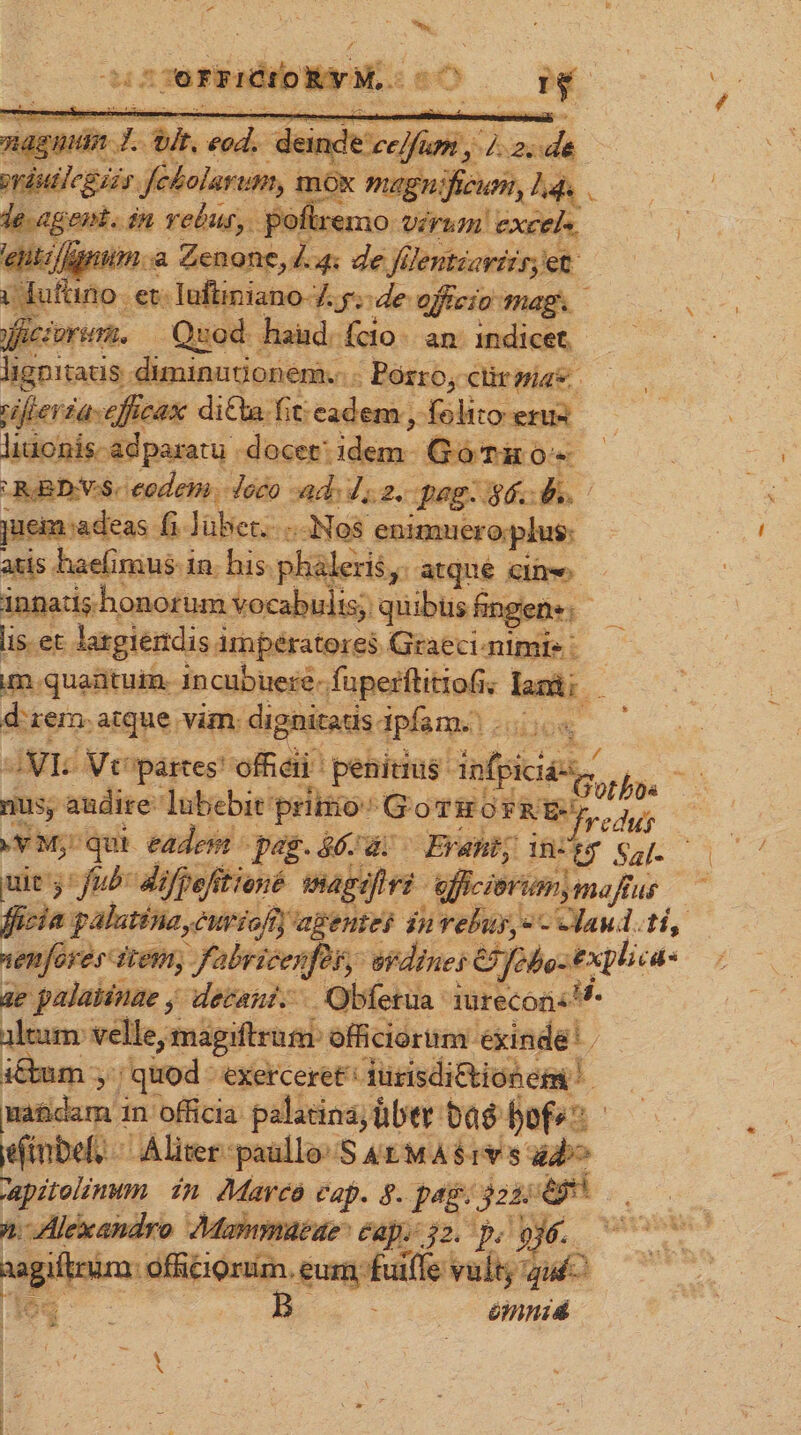 OFFICIORVM. 15
magnum l. vlt. eod. deinde celſum, l. 2. de
priuilegiis ſcholarum, mox magnificum, l. 4.
de agent. in rebus, poſtremo virum excel-
lentiſſimum a Zenone, l. 4. de ſilentiariis, et
a Iuſtino et Iuſtiniano l. 5. de officio mag.
officiorum. Quod haud ſcio an indicet
dignitatis diminutionem. Porro, cur ma-
giſteria efficax dicta ſit eadem, ſolito eru-
ditionis adparatu docet idem GOTHO-
FREDVS eodem loco ad l. 2. pag. 86. b.
quem adeas ſi lubet. Nos enimuero plus
ſatis haeſimus in his phaleris, atque cin-
cinnatis honorum vocabulis, quibus fingen-
dis et largiendis imperatores Graeci nimi-
um quantum incubuere ſuperſtitioſi. Iam
ad rem atque vim dignitatis ipſam.
VI. Vt partes officii penitius inſpicia-
mus, audire lubebit primo GOTHOFRE-
DVM, qui eadem pag. 86. a. Erant, in-
quit, ſub diſpoſitione magiſtri officiorum,
officia palatina, curioſi, agentes in rebus,
menſores item, fabricenſes, ordines et ſcho-
lae palatinae, decani. Obſerua iurecon-
ſultum velle, magiſtrum officiorum exinde
dictum, quod exerceret iurisdictionem
quandam in officia palatina, über das hof-
geſindel. Aliter paullo SALMASIVS ad
Capitolinum in Marco cap. 8. pag. 322. et
in Alexandro Mammaeae cap. 32. p. 936.
magiſtrum officiorum eum fuiſſe vult, qui
B omnia
Gotho-
fredus
et Sal-
maſius
laud. ti,
explica-